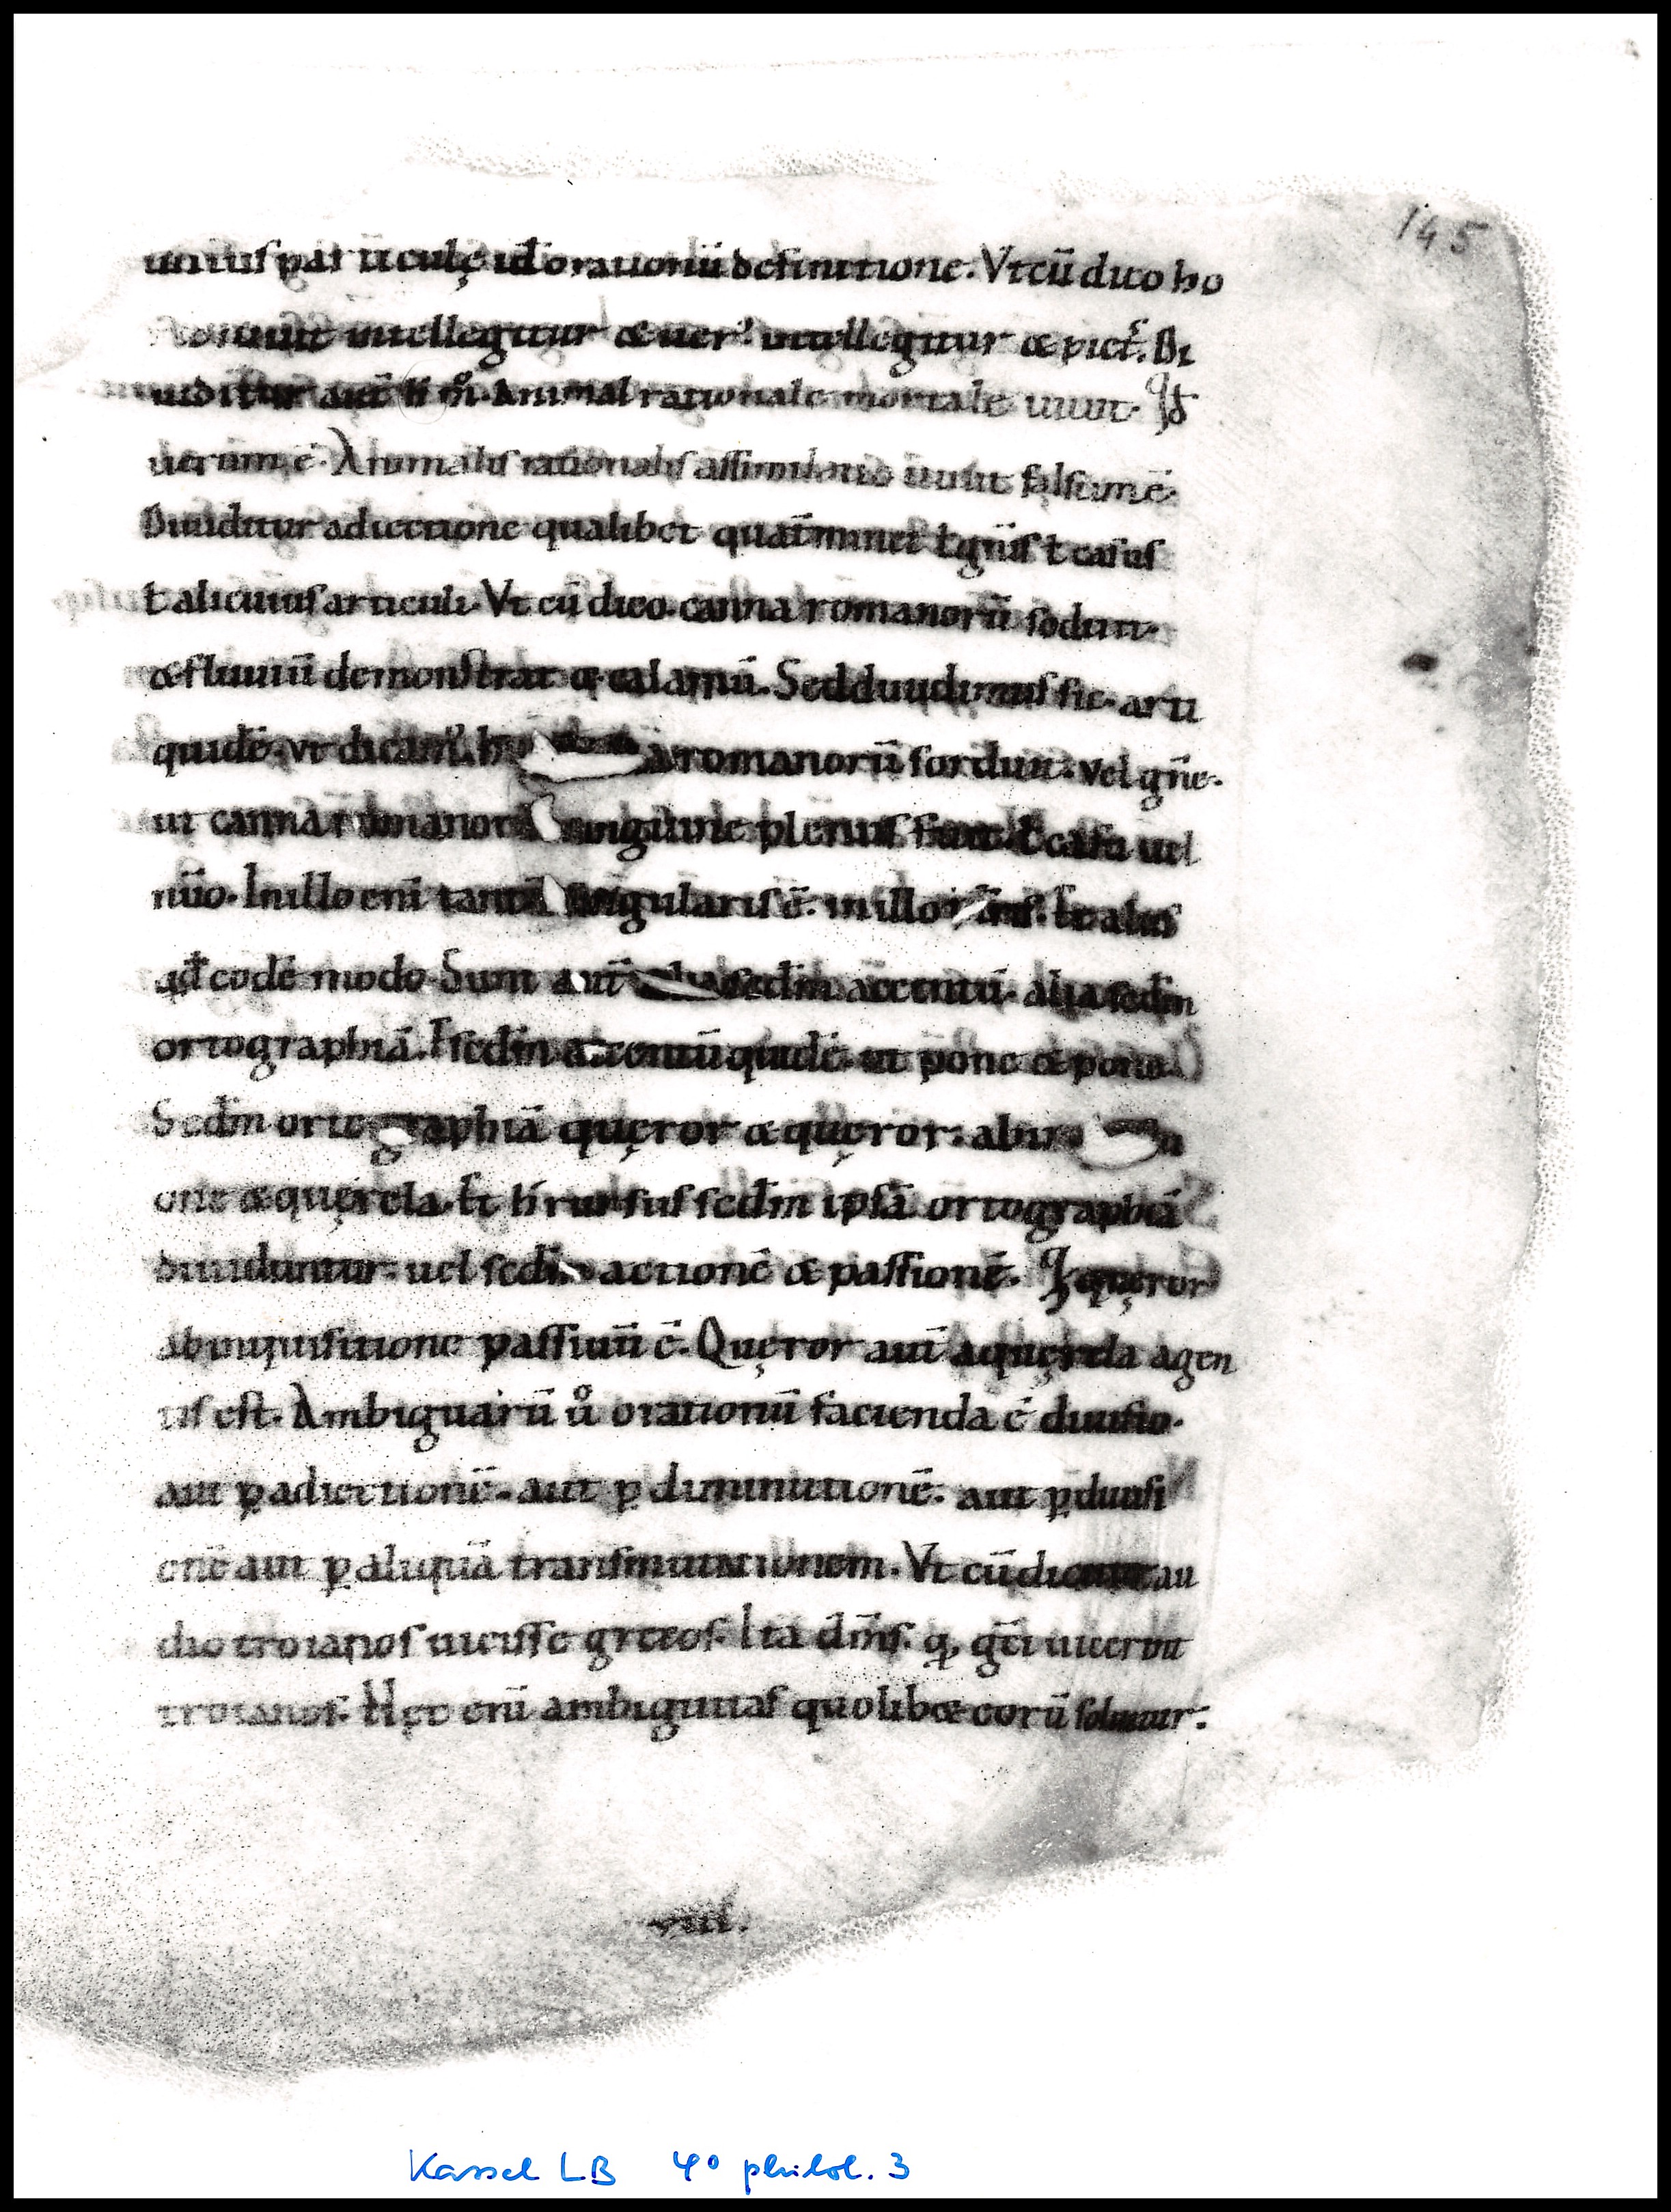 145
unius particulę id̄ orationū definitione. Vt cū dico ho
uiuit intellegitur & uer᷒ intellegitur & pict᷒. Di
uiditur aut̄ h̄ m̊. Animal rationale mortale uiuit. qđ
uerum ē. Animalis rationalis assimilatio uiuit falsum ē.
Diuiditur adiectione qualibet ł gn̄is ł casus
ł alicuius articuli. Vt cū dico. canna romanorū
& fluuiū demonstrat & calamū. Sed diuidimus sic. arti
quidē. ut dicam᷒. romanorū Vel gn̄e.
ut canna romanorū plenus ł casu uel
nūo. In illo enī tantū singularis ē. in illo
eodē modo. Sunt aut̄ alia sed̄m accentū. alia sed̄m
ortographiā. sed̄m accentū quidē. ut pone & pone.
Sed̄m ortographiā quęror & quęror. ab
one & quęrela. Et h̄ rursus sed̄m ipsā ortographiā
diuiduntur. uel sed̄m actionē & passionē. quęror
ab inquisitione passiuū ē. Quęror aut̄ a quęrela agen
tis est. Ambiguarū ů orationū facienda ē diuisio.
aut ꝑ adiectionē. aut ꝑ diminutionē. aut ꝑ diuisi
onē aut ꝑ aliquā transmutationem. Vt cū au
dio troianos uicisse grecos. Ita uicerint
troianos. Hęc enī ambiguitas quolib& eorū soluitur.
viii.
Kassel LB 4° philol. 3